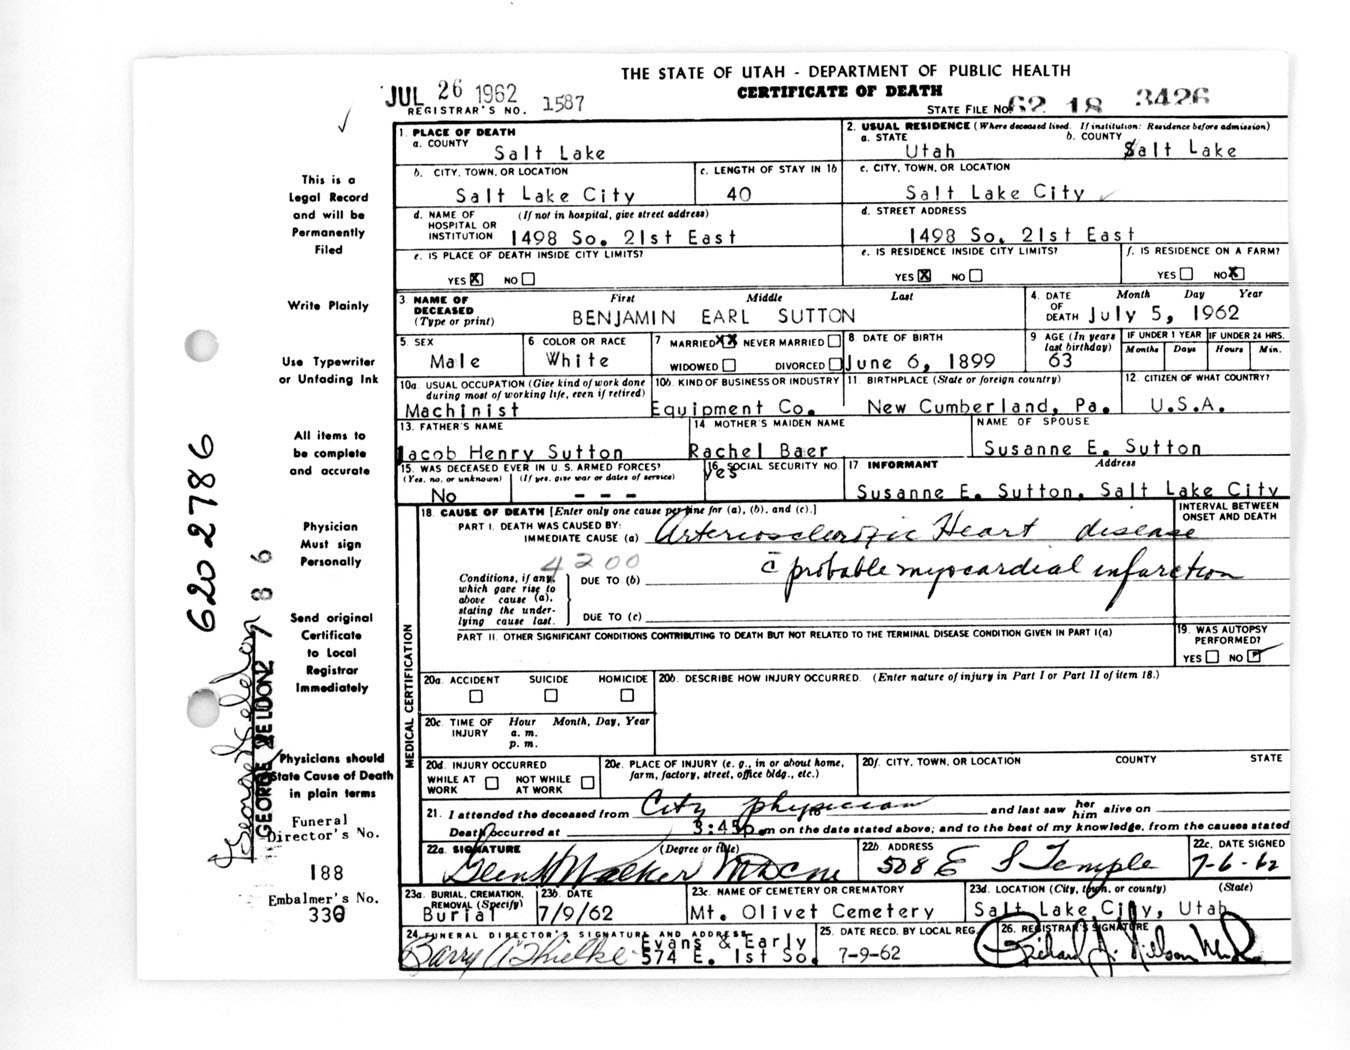 THE STATE OF UTAH - DEPARTMENT OF PUBLIC HEALTH
CERTIFICATE OF DEATH
JUL 26 1962
REGISTRAR'S NO. 1587
STATE FILE NO. 62 18 3426
1. PLACE OF DEATH
a. COUNTY
Salt Lake
2. USUAL RESIDENCE (Where deceased lived. If institution: Residence before admission)
a. STATE b. COUNTY
Utah Salt Lake
b. CITY, TOWN, OR LOCATION
Salt Lake City
c. LENGTH OF STAY IN 1b
40
c. CITY, TOWN, OR LOCATION
Salt Lake City
d. NAME OF (If not in hospital, give street address)
HOSPITAL OR
INSTITUTION 1498 So. 21st East
d. STREET ADDRESS
1498 So. 21st East
e. IS PLACE OF DEATH INSIDE CITY LIMITS?
YES X NO
e. IS RESIDENCE INSIDE CITY LIMITS?
YES X NO
f. IS RESIDENCE ON A FARM?
YES NO X
3. NAME OF DECEASED (Type or print)
First Middle Last
BENJAMIN EARL SUTTON
4. DATE OF DEATH
Month Day Year
July 5, 1962
5 SEX
Male
6 COLOR OR RACE
White
7 MARRIED XX NEVER MARRIED
WIDOWED DIVORCED
8 DATE OF BIRTH
June 6, 1899
9 AGE (In years last birthday)
63
IF UNDER 1 YEAR
Months Days
IF UNDER 24 HRS.
Hours Min.
10a USUAL OCCUPATION (Give kind of work done during most of working life, even if retired)
Machinist
10b. KIND OF BUSINESS OR INDUSTRY
Equipment Co.
11. BIRTHPLACE (State or foreign country)
New Cumberland, Pa.
12. CITIZEN OF WHAT COUNTRY?
U.S.A.
13. FATHER'S NAME
Jacob Henry Sutton
14 MOTHER'S MAIDEN NAME
Rachel Baer
NAME OF SPOUSE
Susanne E. Sutton
15. WAS DECEASED EVER IN U.S. ARMED FORCES?
(Yes, no, or unknown) (If yes, give war or dates of service)
No - - -
16 SOCIAL SECURITY NO.
Yes
17 INFORMANT Address
Susanne E. Sutton, Salt Lake City
18. CAUSE OF DEATH [Enter only one cause per line for (a), (b), and (c).]
INTERVAL BETWEEN ONSET AND DEATH
PART I. DEATH WAS CAUSED BY:
IMMEDIATE CAUSE (a) Arteriosclerotic Heart disease
4200
c̄ probable myocardial infarction
Conditions, if any, which gave rise to above cause (a), stating the underlying cause last.
DUE TO (b)
DUE TO (c)
PART II. OTHER SIGNIFICANT CONDITIONS CONTRIBUTING TO DEATH BUT NOT RELATED TO THE TERMINAL DISEASE CONDITION GIVEN IN PART I(a)
19. WAS AUTOPSY PERFORMED?
YES NO ✓
MEDICAL CERTIFICATION
20a. ACCIDENT SUICIDE HOMICIDE
20b. DESCRIBE HOW INJURY OCCURRED. (Enter nature of injury in Part I or Part II of item 18.)
20c. TIME OF INJURY
Hour Month, Day, Year
a. m.
p. m.
20d. INJURY OCCURRED
WHILE AT WORK NOT WHILE AT WORK
20e. PLACE OF INJURY (e. g., in or about home, farm, factory, street, office bldg., etc.)
20f. CITY, TOWN, OR LOCATION COUNTY STATE
21. I attended the deceased from City physician to and last saw her him alive on
Death occurred at 3:45p.m on the date stated above; and to the best of my knowledge, from the causes stated
22a. SIGNATURE (Degree or title)
Glen H Walker MD
22b ADDRESS
508 E S Temple
22c. DATE SIGNED
7-6-62
23a. BURIAL, CREMATION, REMOVAL (Specify)
Burial
23b. DATE
7/9/62
23c. NAME OF CEMETERY OR CREMATORY
Mt. Olivet Cemetery
23d. LOCATION (City, town, or county) (State)
Salt Lake City, Utah
24. FUNERAL DIRECTOR'S SIGNATURE AND ADDRESS
Evans & Early
574 E. 1st So.
25. DATE RECD. BY LOCAL REG.
7-9-62
26. REGISTRAR'S SIGNATURE
This is a
Legal Record
and will be
Permanently
Filed
Write Plainly
Use Typewriter
or Unfading Ink
All items to
be complete
and accurate
Physician
Must sign
Personally
Send original
Certificate
to Local
Registrar
Immediately
Physicians should
State Cause of Death
in plain terms
Funeral
Director's No.
188
Embalmer's No.
330
620 2786